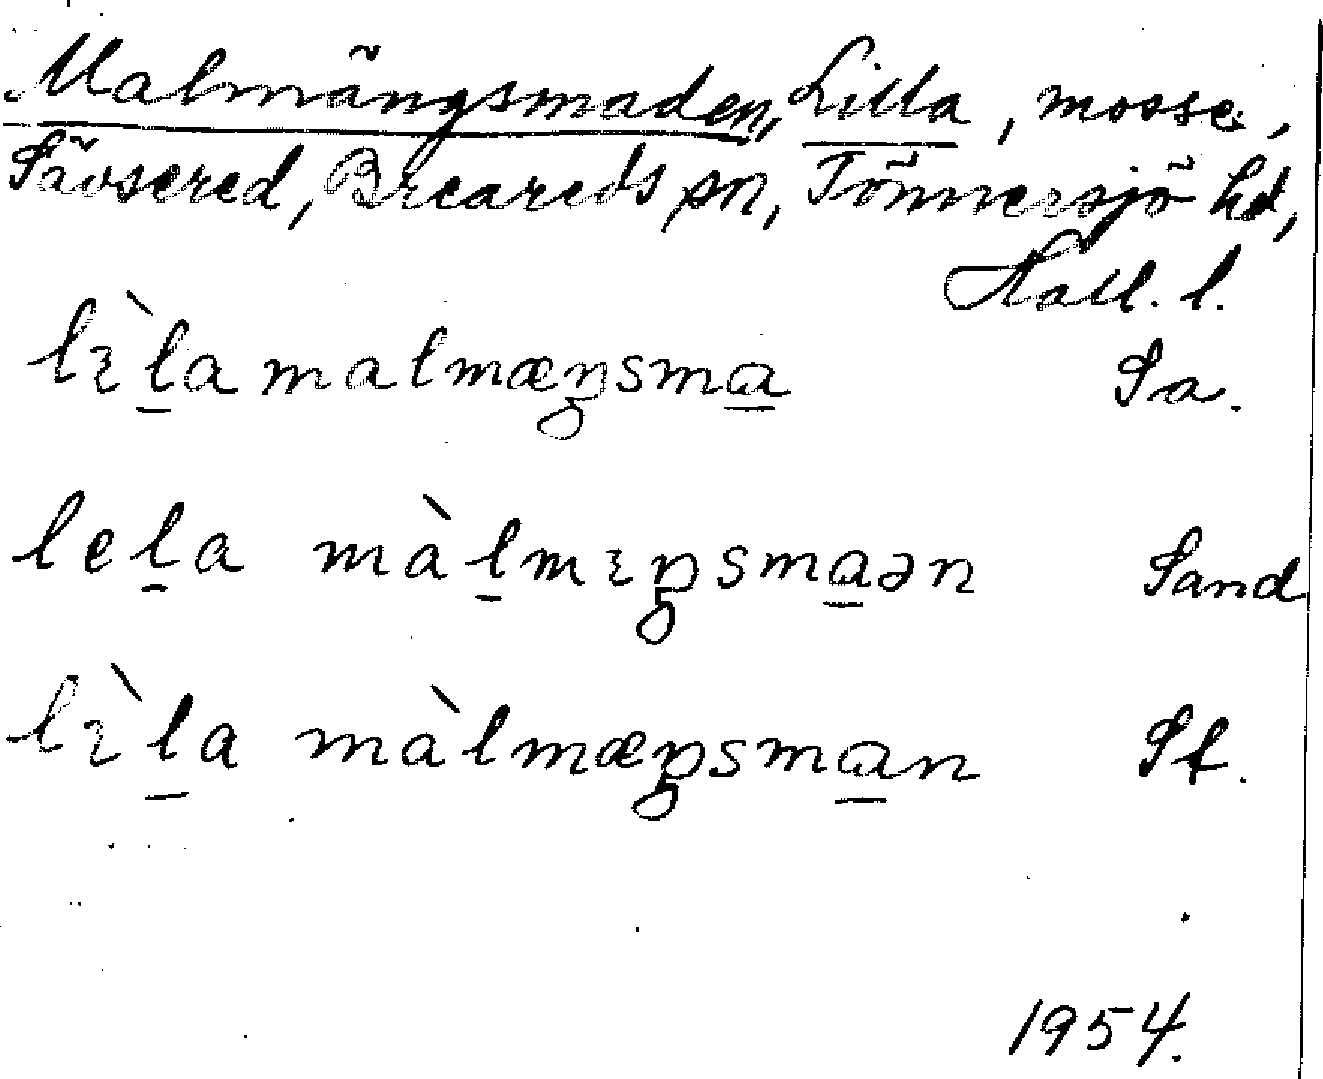 Malmängsmaden, Lilla, mosse,
Sävsered, Breareds sn, Tönnersjö hd,
Hall. l.
lɪ̀l̲a malmæŋsma̲ Sa.
lel̲a màl̲mɪŋsma̲ən Sand
lɪ̀l̲a màlmæŋsma̲n St.
1954.